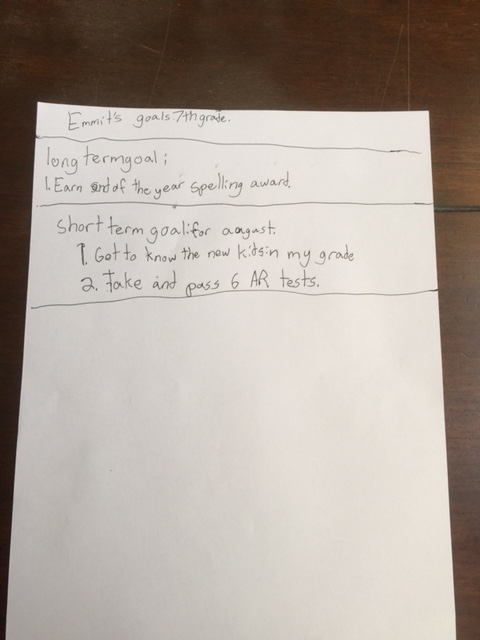 Emmit's goals 7th grade.
long term goal;
1. Earn end of the year spelling award.
short term goal: for aougust.
1. Get to know the new kids in my grade
2. Take and pass 6 AR tests.